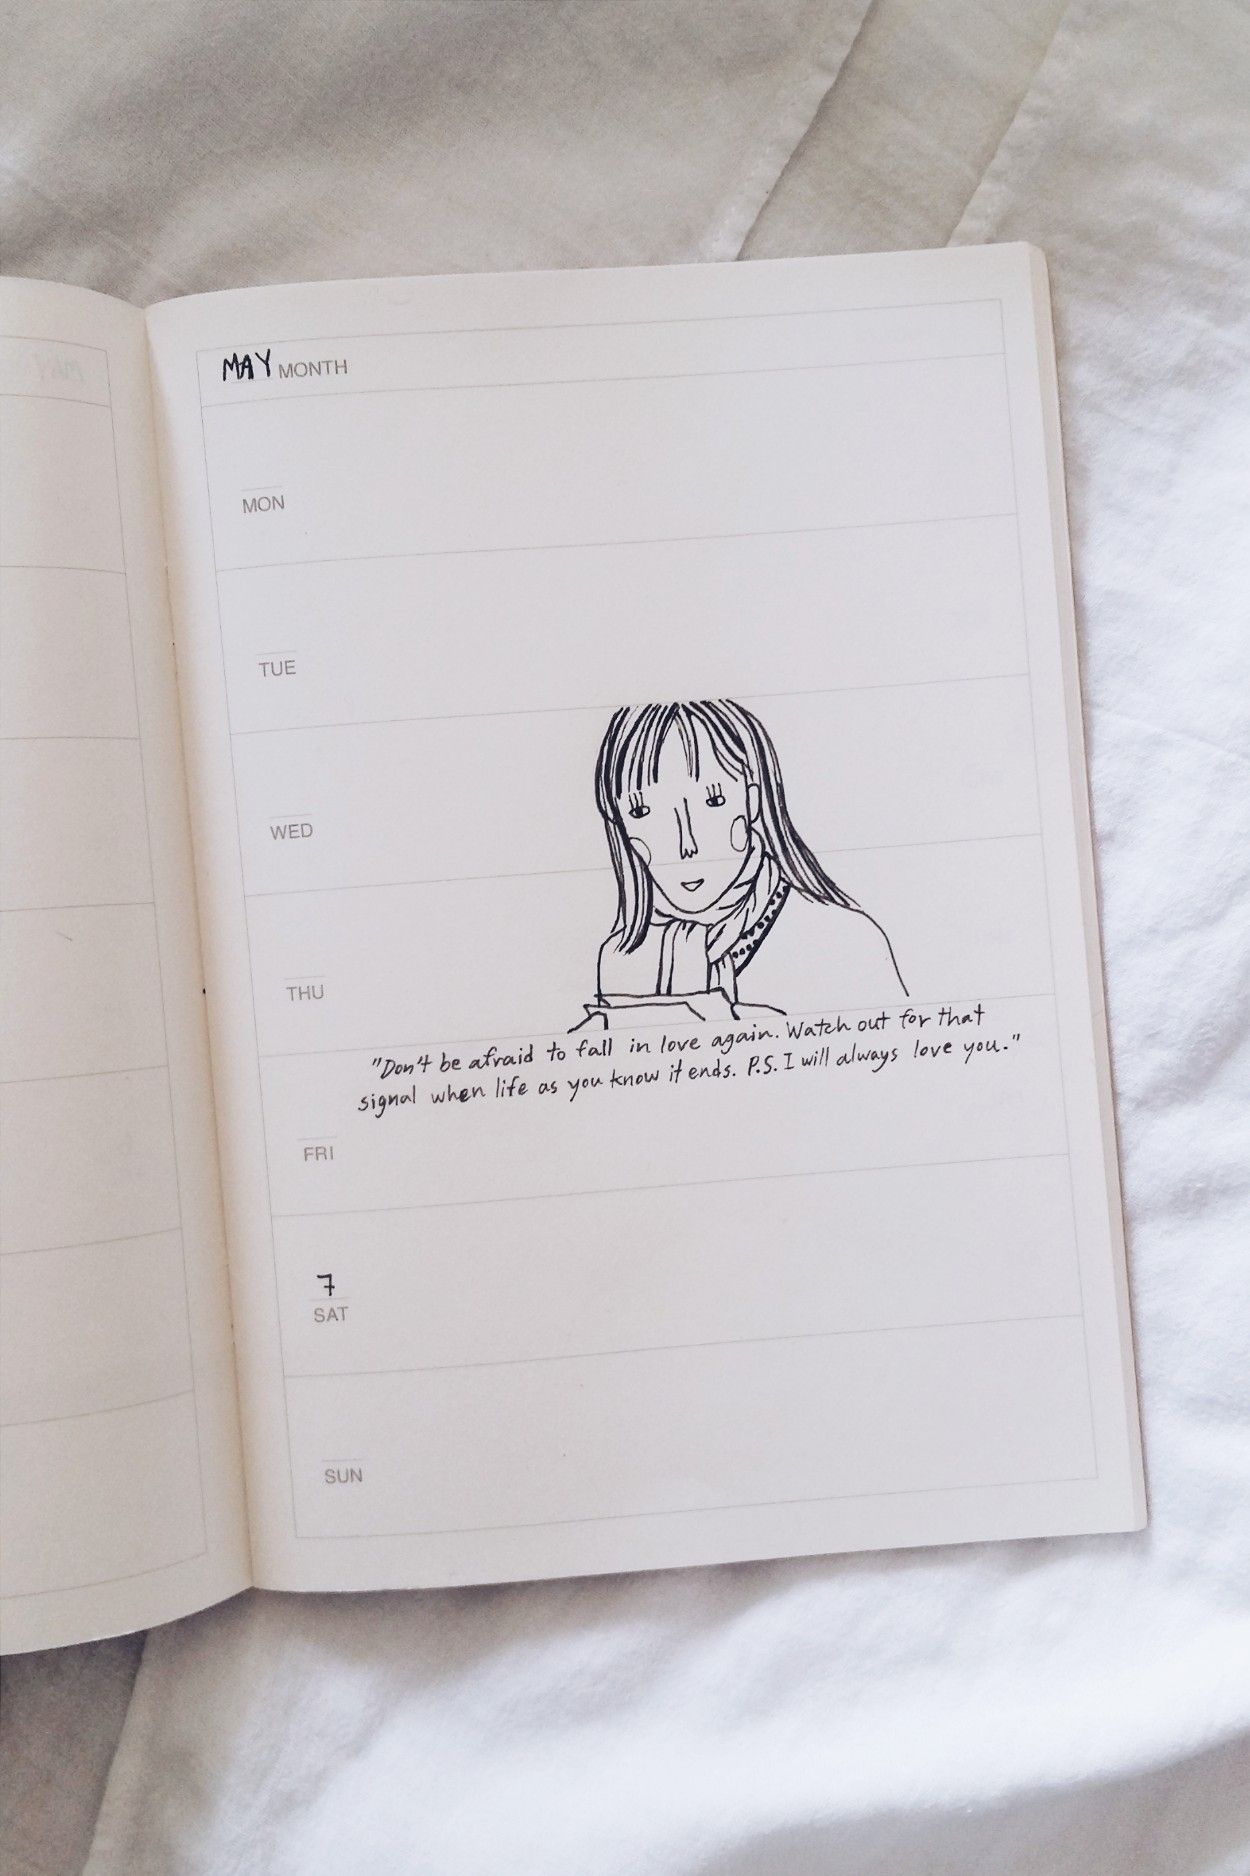 MAY MONTH
MON
TUE
WED
THU
"Don't be afraid to fall in love again. Watch out for that
signal when life as you know it ends. P.S. I will always love you."
FRI
7
SAT
SUN